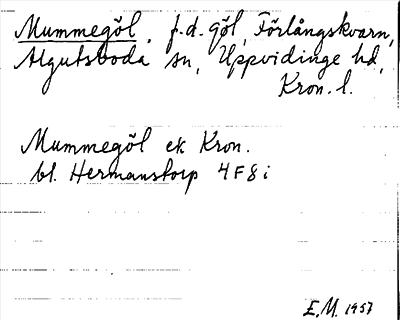 Mummegöl, f.d. göl, Förlångskvarn,
Algutsboda sn, Uppvidinge hd,
Kron. l.
Mummegöl ek Kron.
bl. Hermanstorp 4F8i
E.M. 1957